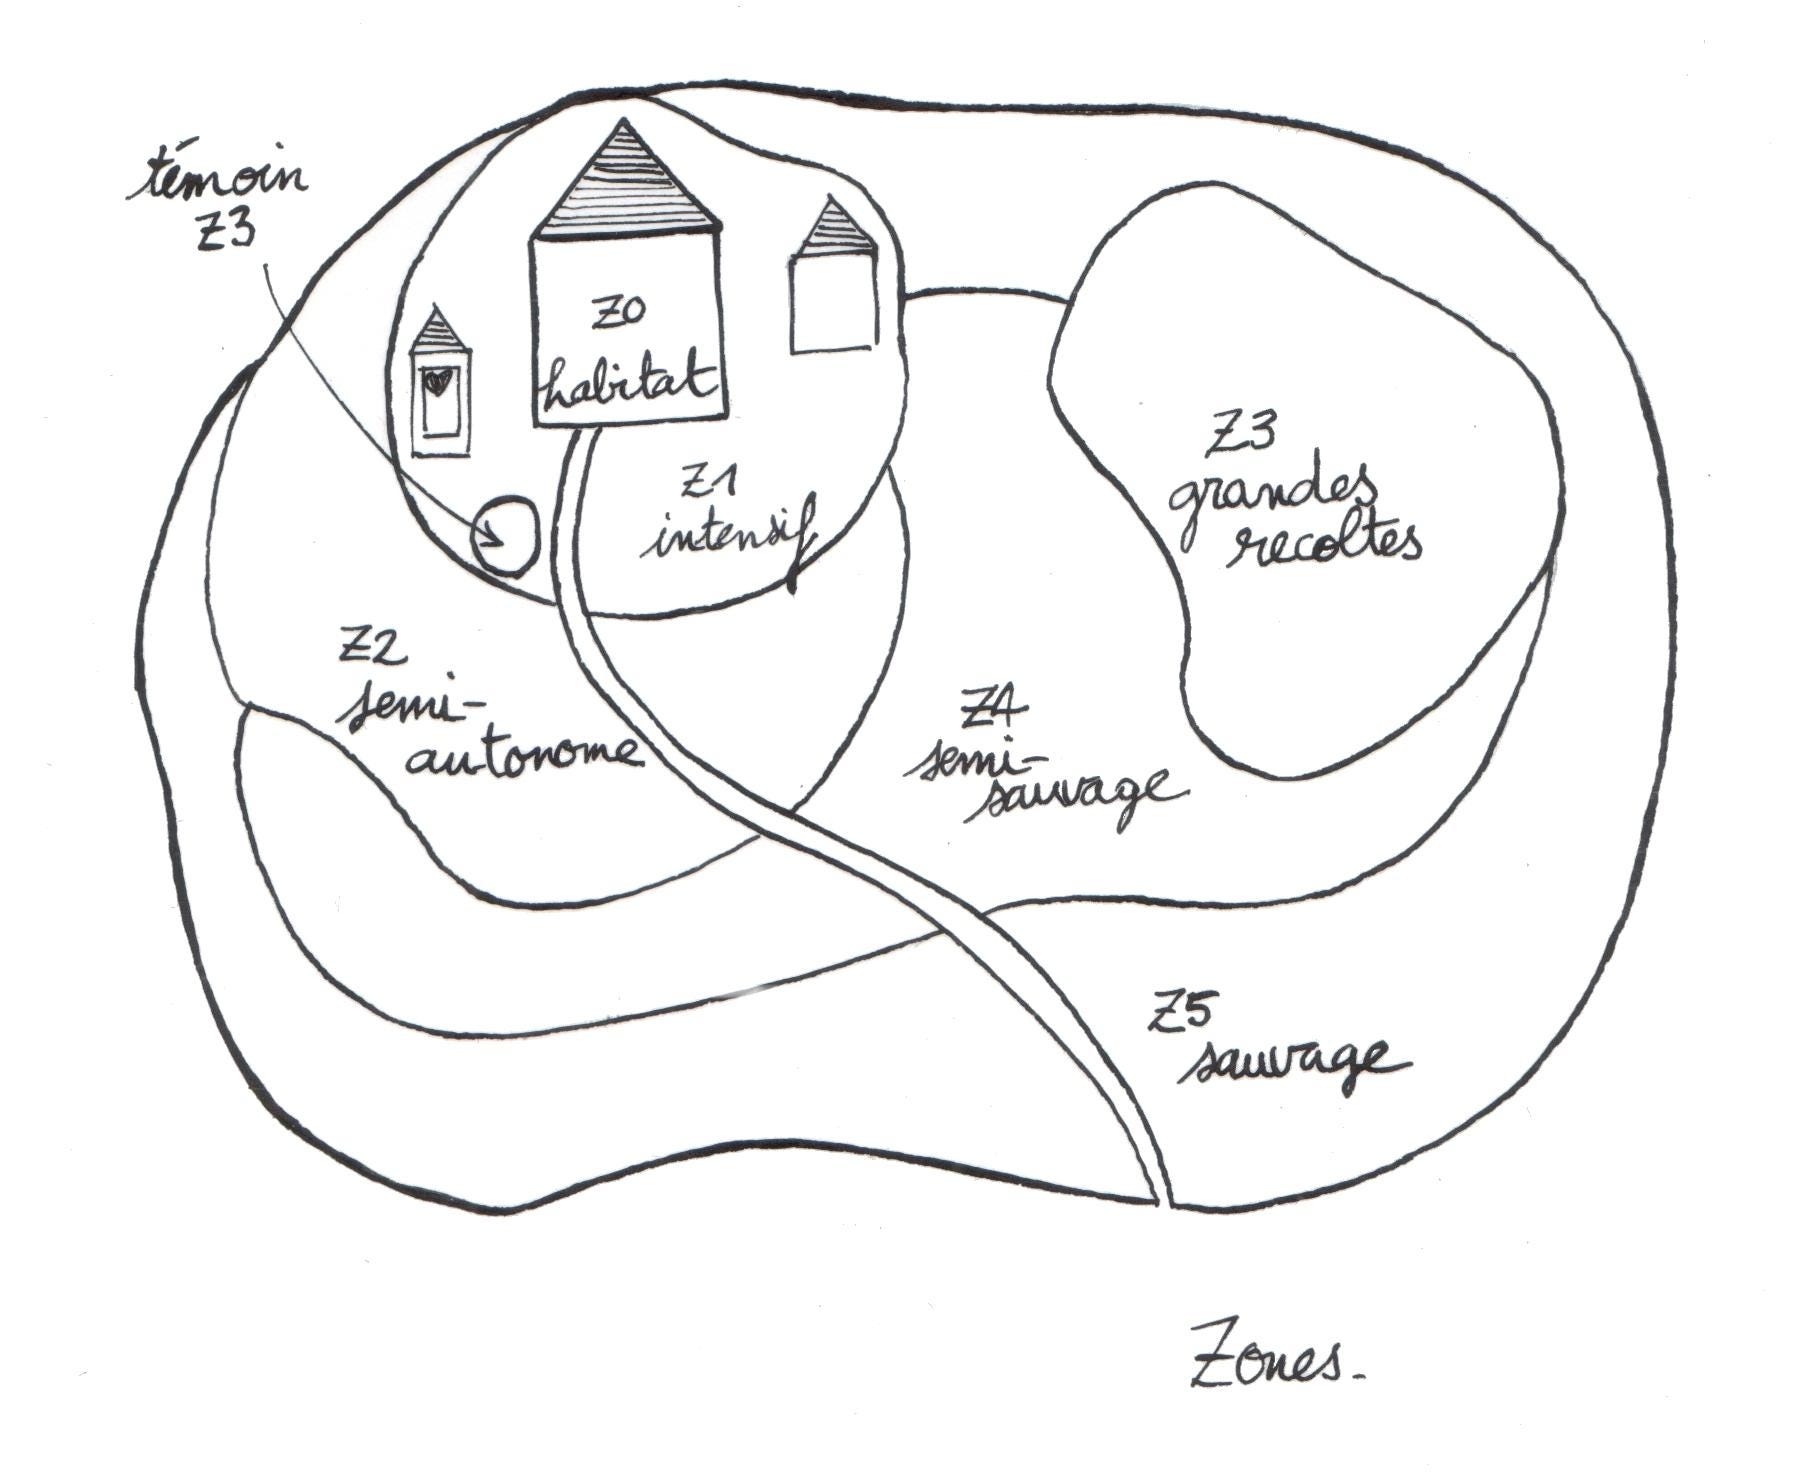 témoin
Z3
Z0
habitat
Z1
intensif
Z3
grandes
recoltes
Z2
semi-
autonome
Z4
semi-
sauvage
Z5
sauvage
Zones.